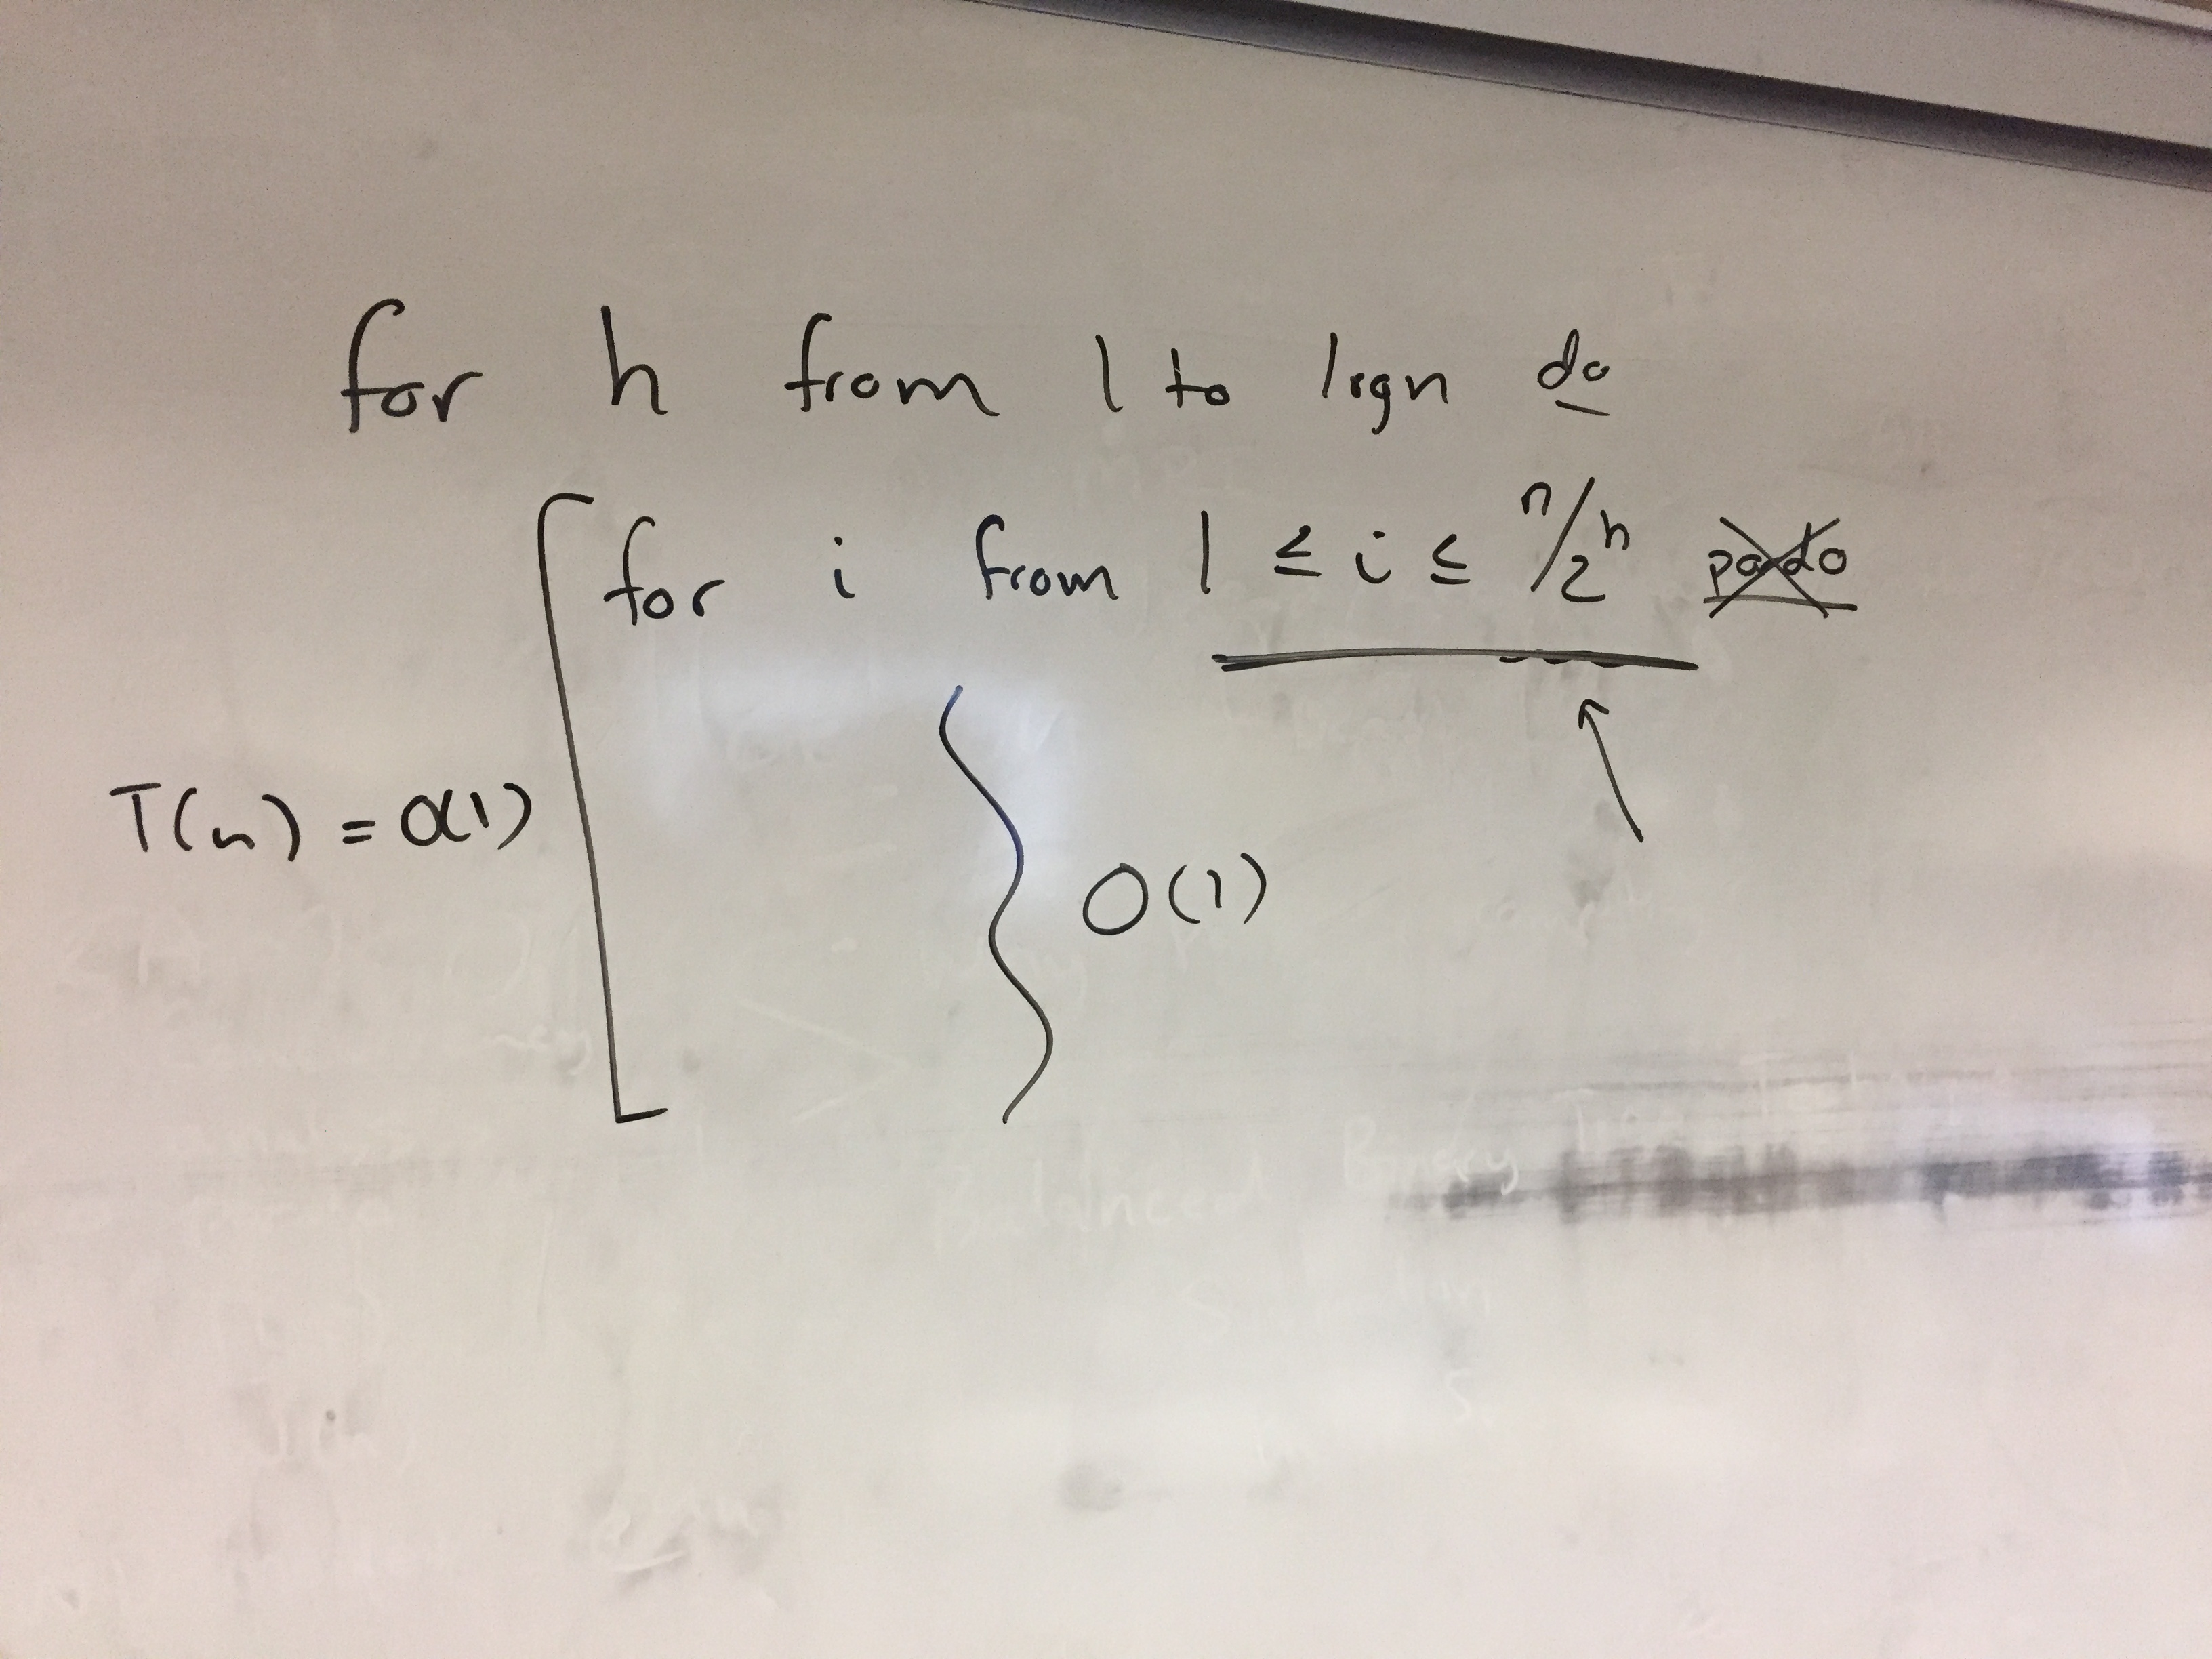 for h from 1 to log n do
for i from 1 ≤ i ≤ n/2^h pardo
T(n) = O(1)
O(1)
Balanced Binary Tree